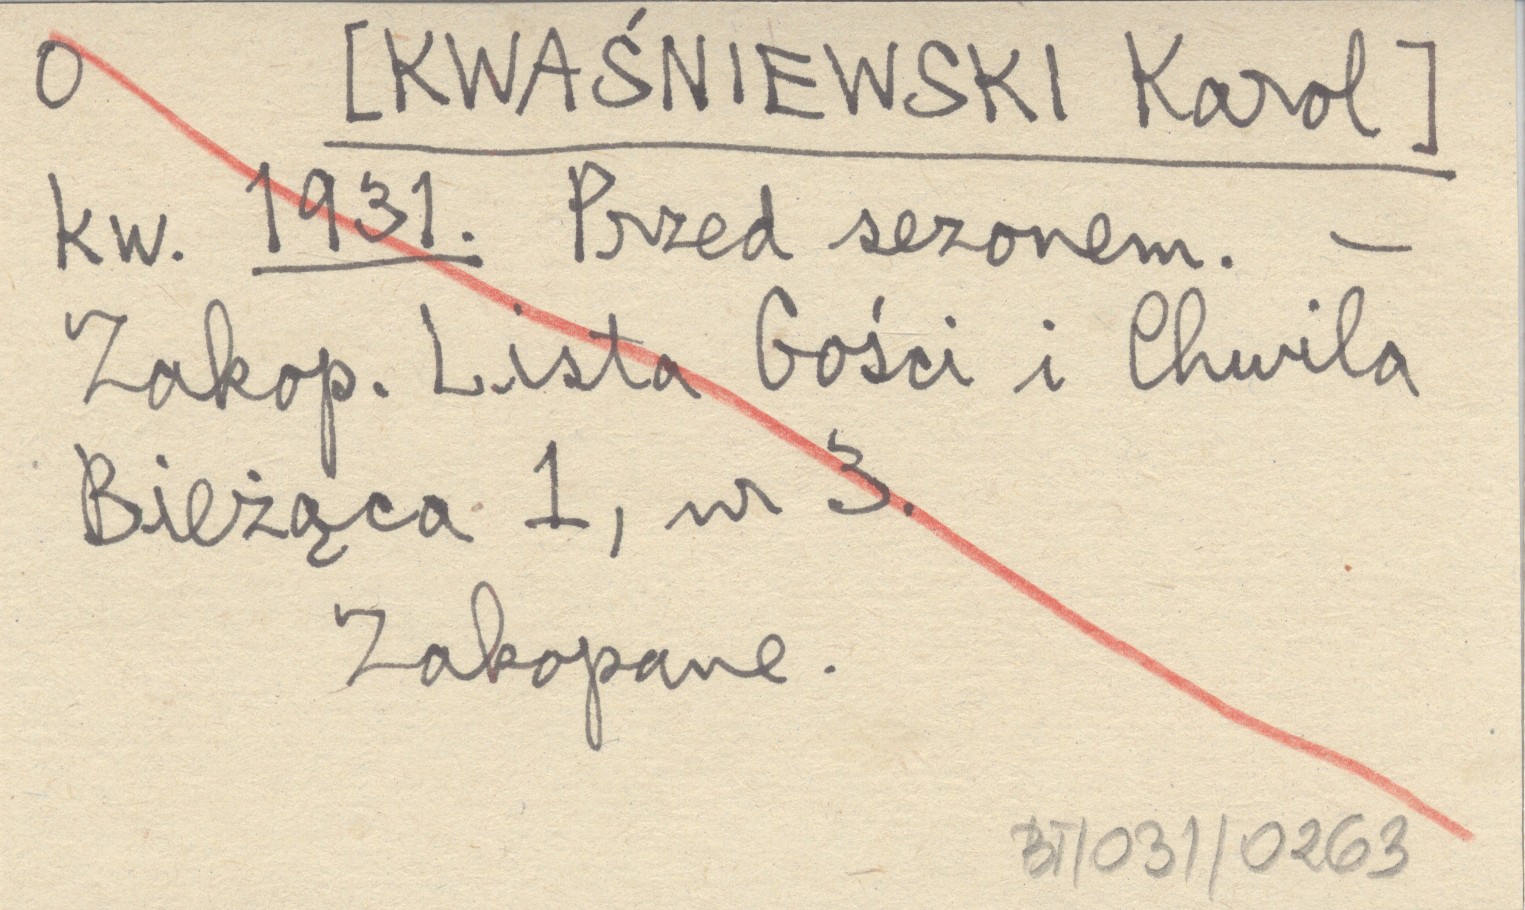 0 [KWAŚNIEWSKI Karol]
kw. 1931. Przed sezonem. —
Zakop. Lista Gości i Chwila
Bieżąca 1, nr 3.
Zakopane.
BT/031/0263